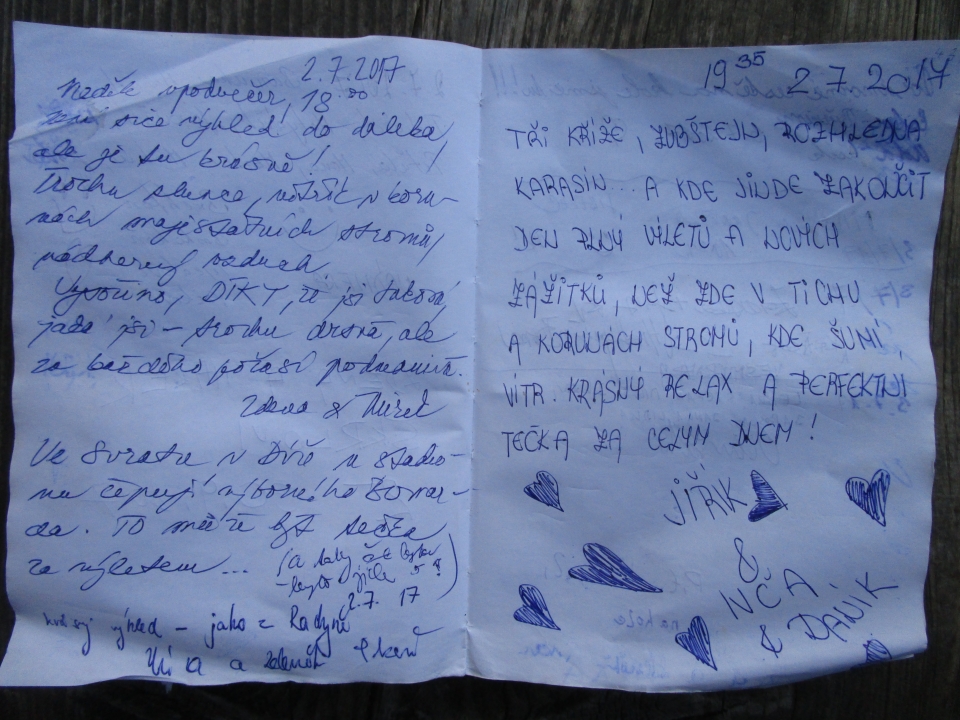 2.7.2017
podvečer, 18.00
není sice výhled do daleka,
ale je tu krásně!
Trochu slunce, větřík v koru-
nách majestátních stromů,
nádherný vzduch.
Vysočino, DÍKY, že jsi taková,
jaká jsi – trochu drsná, ale
za každého počasí podmanivá.
Zdena & Mirek
Ve Svratce v Dívč u stadio-
nu čepují výborného Berna-
da. To může být tečka
za výletem... (a taky
2.7. 17
výhled – jako z Radyně
a
19 35 2 7 2017
TŘI KŘÍŽE, ZUBŠTEJN, ROZHLEDNA
KARASÍN... A KDE JINDE ZAKONČIT
DEN PLNÝ VÝLETŮ A NOVÝCH
ZÁŽITKŮ, NEŽ ZDE V TICHU
A KORUNÁCH STROMŮ, KDE ŠUMÍ
VÍTR. KRÁSNÝ RELAX A PERFEKTNÍ
TEČKA ZA CELÝM DNEM!
JIŘÍK
&
NČA
& DANÍK